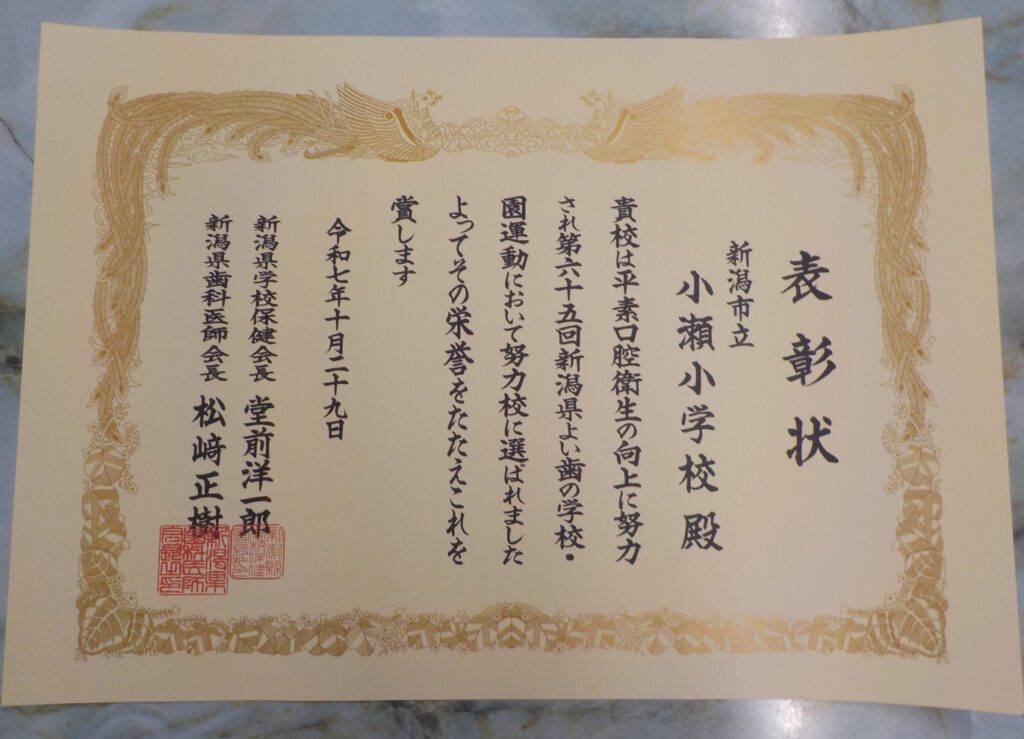 表彰状
新潟市立
小瀬小学校殿
貴校は平素口腔衛生の向上に努力
され第六十五回新潟県よい歯の学校・
園運動において努力校に選ばれました
よってその栄誉をたたえこれを
賞します
令和七年十月二十九日
新潟県学校保健会長 堂前洋一郎
新潟県歯科医師会長 松﨑正樹